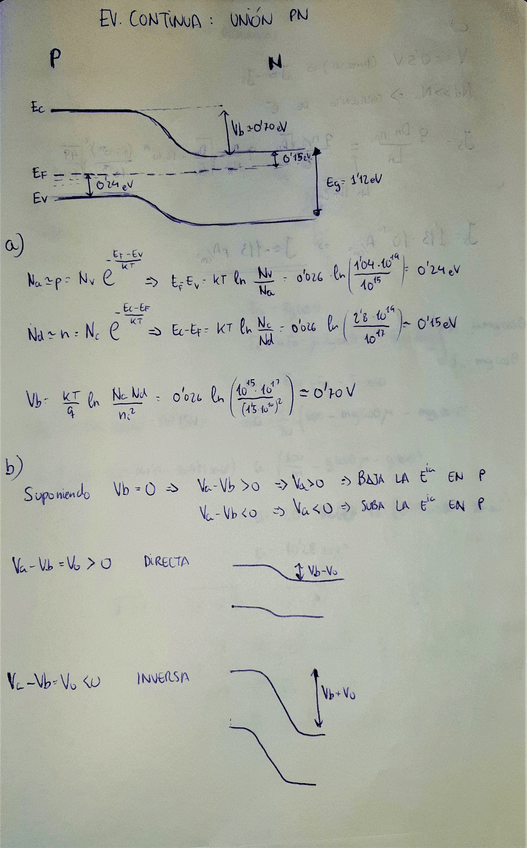 EV. CONTINUA: UNIÓN PN
P N
Ec
Vb=0'70eV
0'15eV
EF
0'24eV
Eg=1'12eV
Ev
a)
Na≃p = Nv e^(-(EF-Ev)/KT) ⇒ EF Ev = KT ln Nv/Na = 0'026 ln(1'04·10^19/10^15) = 0'24eV
Nd≃n = Nc e^(-(Ec-EF)/KT) ⇒ Ec-EF = KT ln Nc/Nd = 0'026 ln(2'8·10^19/10^17) ≃ 0'15eV
Vb = KT/q ln Nc Nd/ni^2 = 0'026 ln(10^15·10^17/(1'5·10^10)^2) ≃ 0'70V
b)
Suponiendo Vb=0 ⇒ Va-Vb>0 ⇒ Va>0 ⇒ BAJA LA Eia EN P
Va-Vb<0 ⇒ Va<0 ⇒ SUBA LA Eia EN P
Va-Vb=Vo>0 DIRECTA
Vb-Vo
Va-Vb=Vo<0 INVERSA
Vb+Vo